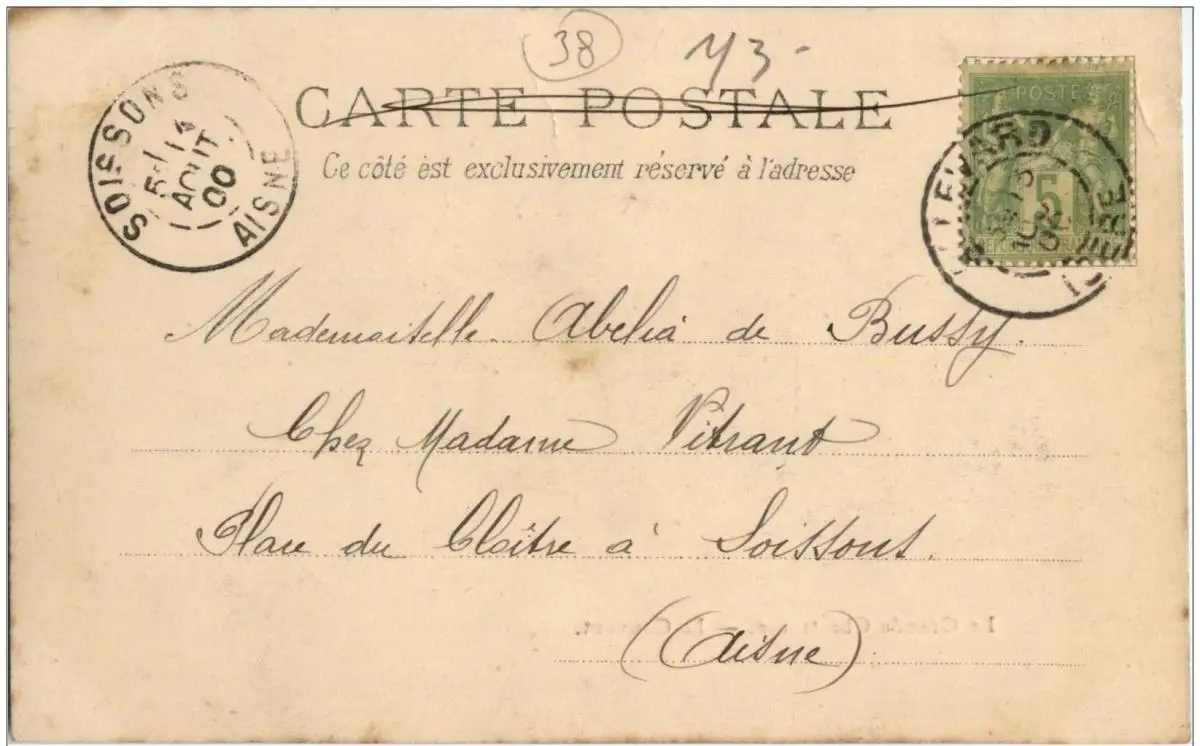 38 43-
CARTE POSTALE
Ce côté est exclusivement réservé à l'adresse
SOISSONS
14
AOUT
00
AISNE
POSTES
5
ALLEVARD
ISÈRE
Mademoiselle Abelia de Bussy.
Chez Madame Vitrant
Place du Cloître à Soissons.
(Aisne)